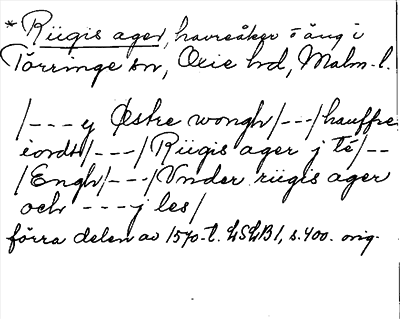 *Riigis ager, havreåker o äng i
Törringe sn, Oxie hd, Malm-l.
/--- y Østre wongh/---/hauffre
iordt/---/Riigis ager j té/--
/Engh/---/Vnder riigis ager
och --- j les/
förra delen av 1570-t. LSLB1, s. 400. orig.